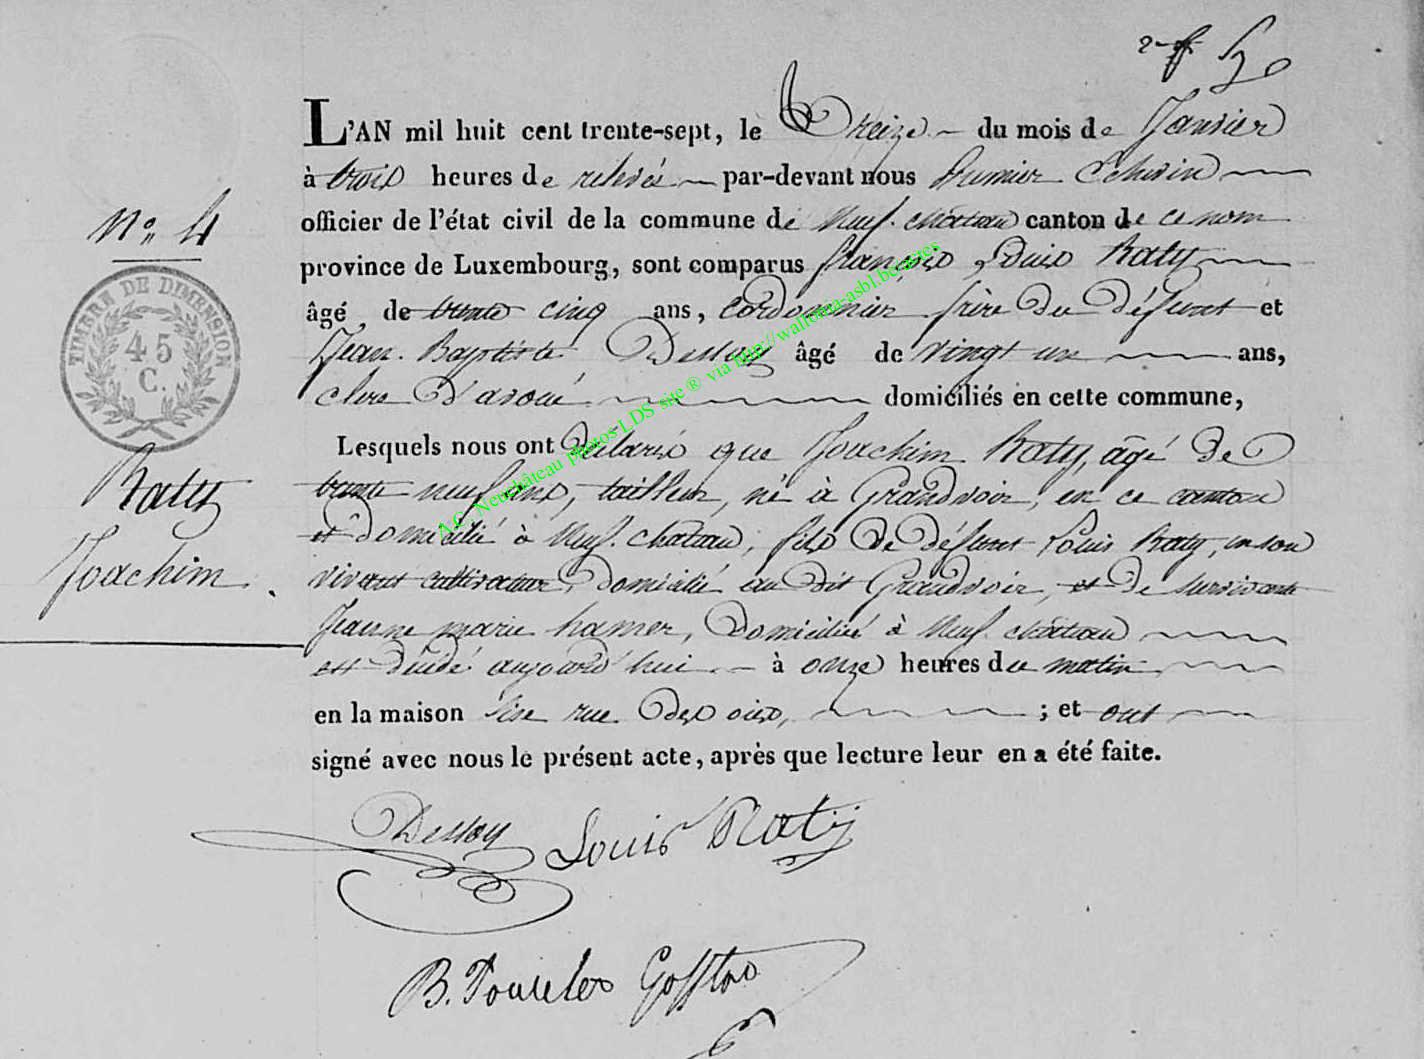 2 f
L'AN mil huit cent trente-sept, le treize du mois de Janvier
à trois heures de relevée par-devant nous premier Echevin
officier de l'état civil de la commune de Neuf-château canton de ce nom
province de Luxembourg, sont comparus françois Louis Raty
âgé de trente cinq ans, cordonnier frère du défunt et
Jean-Baptiste Dessoy âgé de vingt un ans,
clerc d'avoué domiciliés en cette commune,
Lesquels nous ont déclaré que Joachim Raty, âgé de
trente neuf ans, tailleur, né à Grandvoir, en ce canton
et domicilié à Neuf-château, fils de défunt Louis Raty, en son
vivant cultivateur, domicilié au dit Grandvoir, et de survivante
Jeanne marie hamer, domiciliée à Neuf-château
est décédé aujourd'hui à onze heures du matin
en la maison sise rue ; et ont
signé avec nous le présent acte, après que lecture leur en a été faite.
No 4
TIMBRE DE DIMENSION
45
C.
Raty
Joachim.
Dessoy Louis Raty
B.
A.C. Neufchâteau photos LDS site ® via http://wallonia-asbl.be/textes